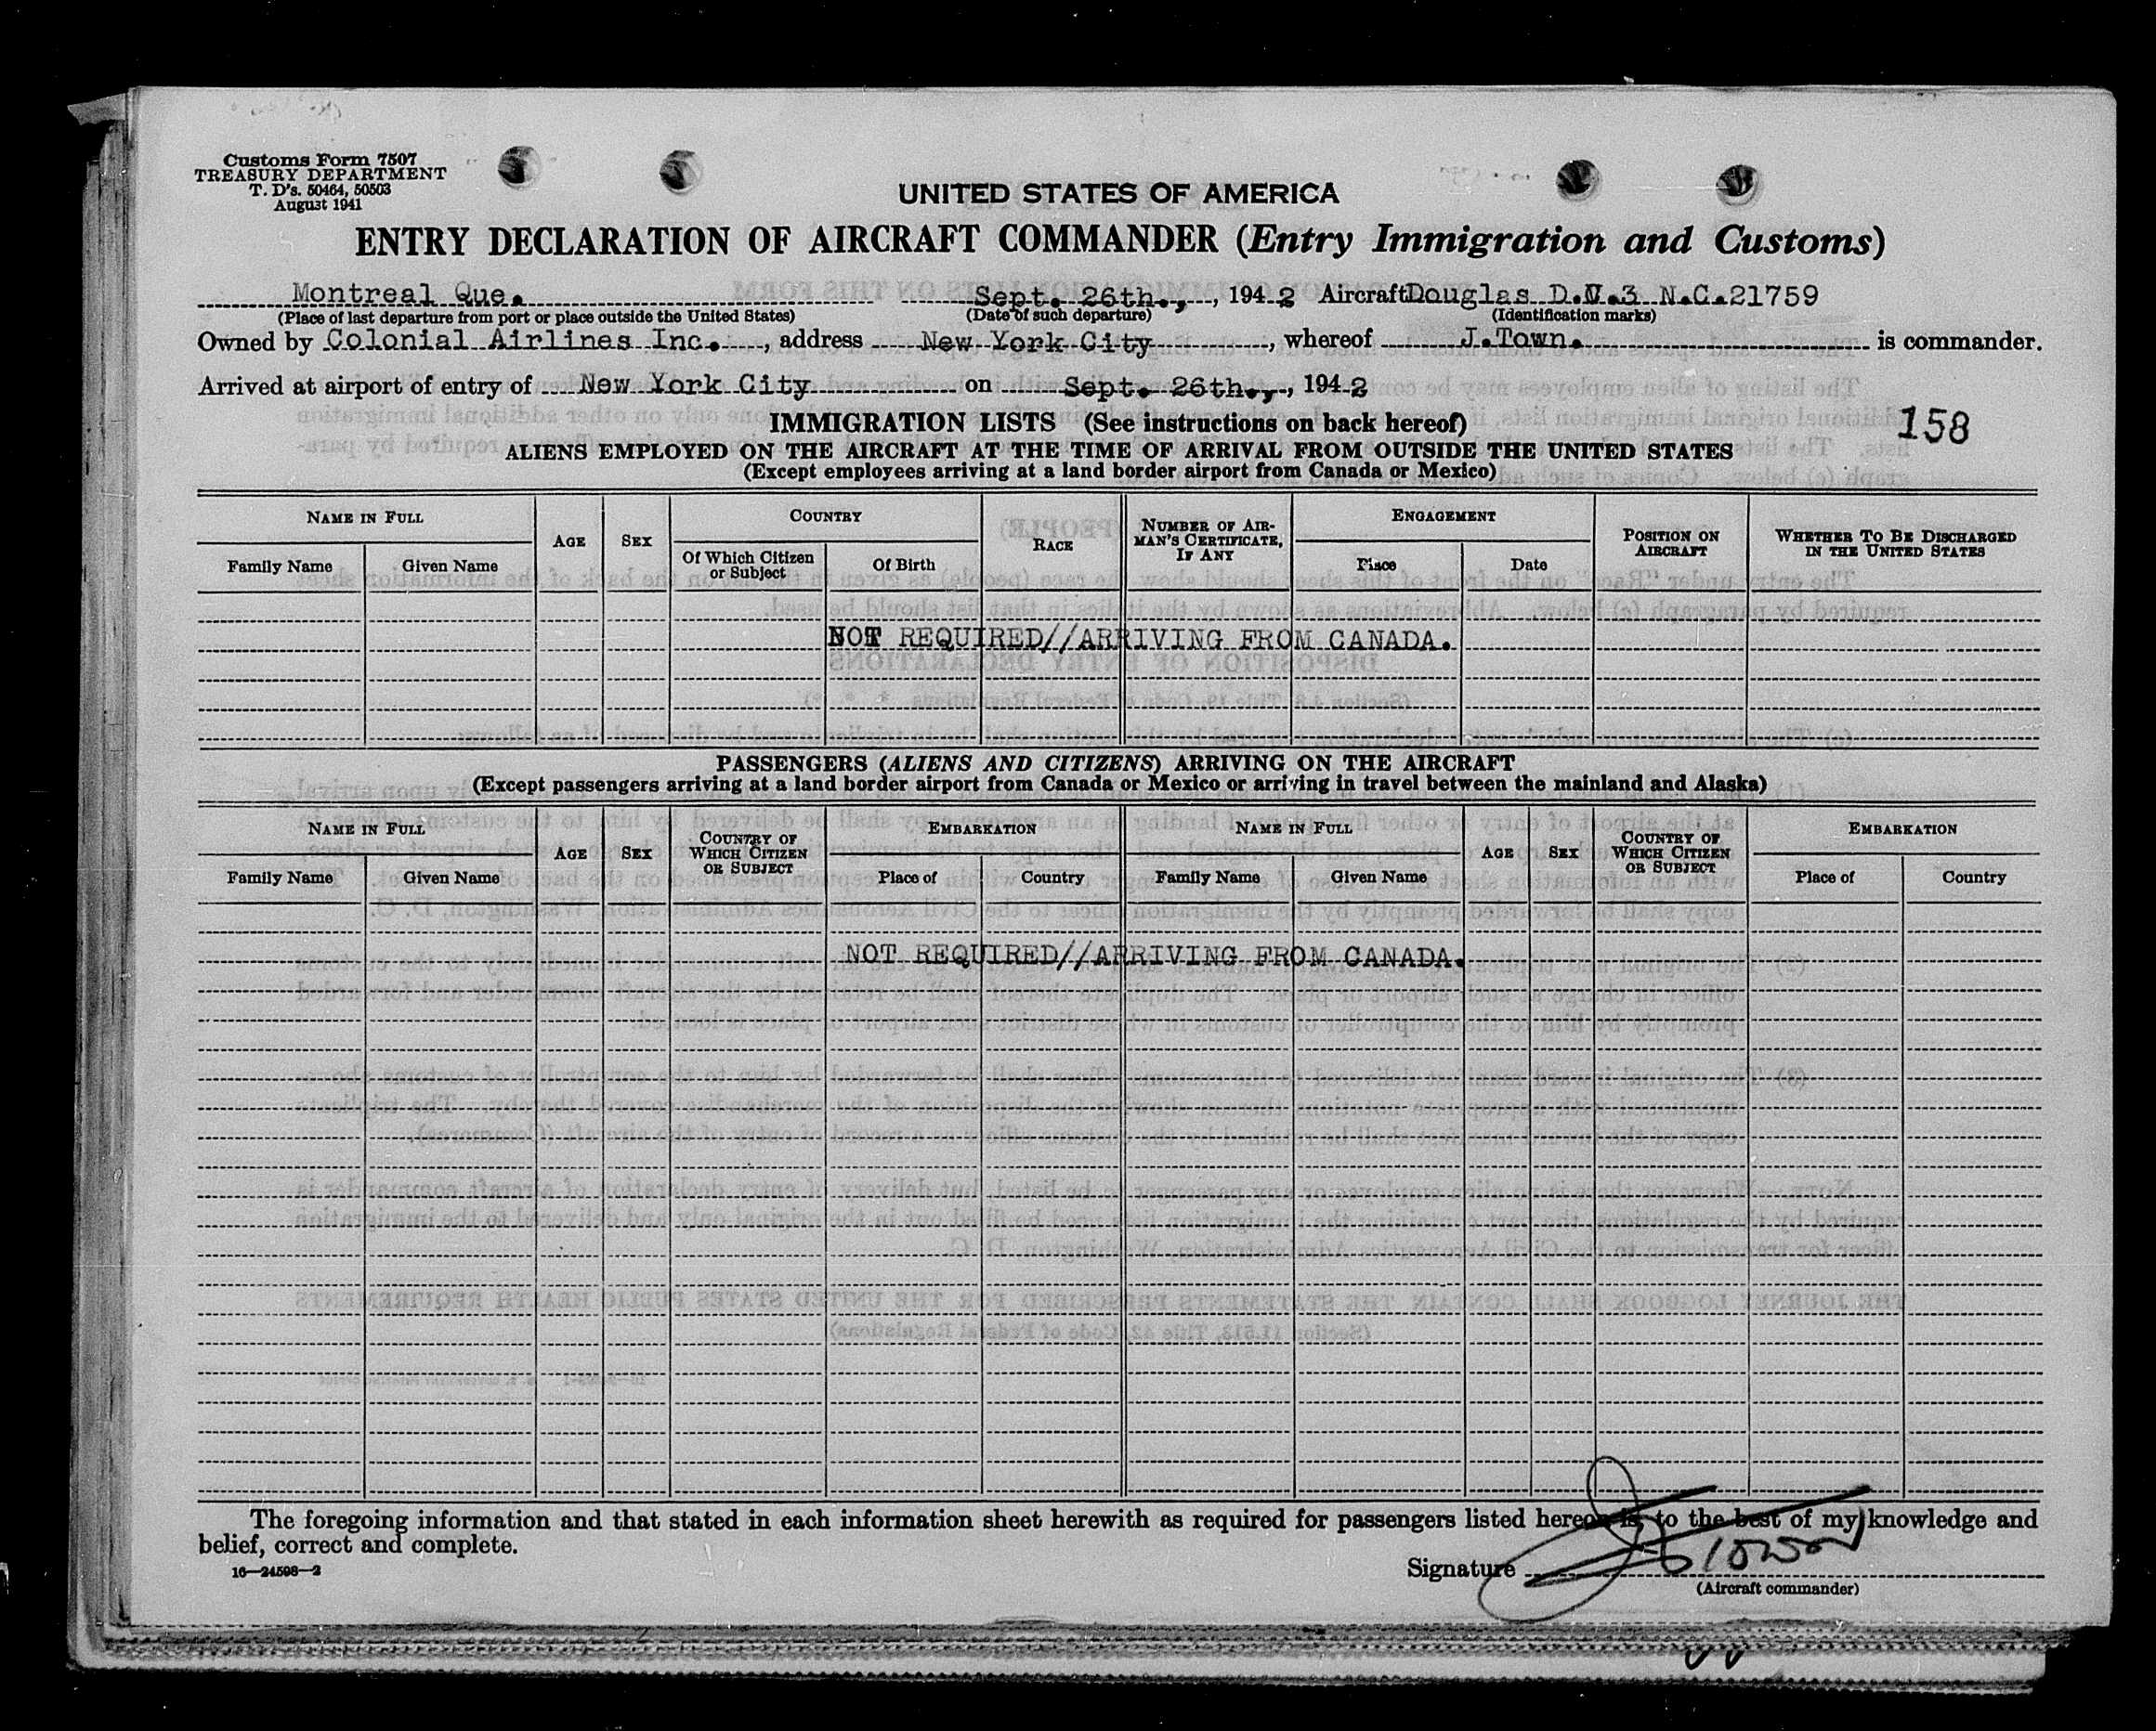 Customs Form 7507
TREASURY DEPARTMENT
T. D's. 50464, 50503
August 1941
UNITED STATES OF AMERICA
ENTRY DECLARATION OF AIRCRAFT COMMANDER (Entry Immigration and Customs)
Montreal Que. Sept. 26th., , 194 2 Aircraft Douglas D.C.3 N.C.21759
(Place of last departure from port or place outside the United States) (Date of such departure) (Identification marks)
Owned by Colonial Airlines Inc. , address New York City , whereof J.Town. is commander.
Arrived at airport of entry of New York City on Sept. 26th., , 194 2
158
IMMIGRATION LISTS (See instructions on back hereof)
ALIENS EMPLOYED ON THE AIRCRAFT AT THE TIME OF ARRIVAL FROM OUTSIDE THE UNITED STATES
(Except employees arriving at a land border airport from Canada or Mexico)
NAME IN FULL AGE SEX COUNTRY RACE NUMBER OF AIRMAN'S CERTIFICATE, IF ANY ENGAGEMENT POSITION ON AIRCRAFT WHETHER TO BE DISCHARGED IN THE UNITED STATES
Family Name Given Name Of Which Citizen or Subject Of Birth Place Date
NOT REQUIRED//ARRIVING FROM CANADA.
PASSENGERS (ALIENS AND CITIZENS) ARRIVING ON THE AIRCRAFT
(Except passengers arriving at a land border airport from Canada or Mexico or arriving in travel between the mainland and Alaska)
NAME IN FULL AGE SEX COUNTRY OF WHICH CITIZEN OR SUBJECT EMBARKATION NAME IN FULL AGE SEX COUNTRY OF WHICH CITIZEN OR SUBJECT EMBARKATION
Family Name Given Name Place of Country Family Name Given Name Place of Country
NOT REQUIRED//ARRIVING FROM CANADA.
The foregoing information and that stated in each information sheet herewith as required for passengers listed hereon is, to the best of my knowledge and
belief, correct and complete.
16—24598—2
Signature J Town
(Aircraft commander)